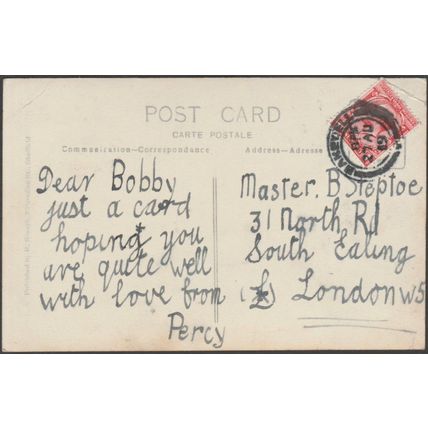 POST CARD
CARTE POSTALE
Communication-Correspondance
Address-Adresse
Dear Bobby
just a card
hoping you
are quite well
with love from
Percy
Master. B. Steptoe
31 North Rd
South Ealing
London W5